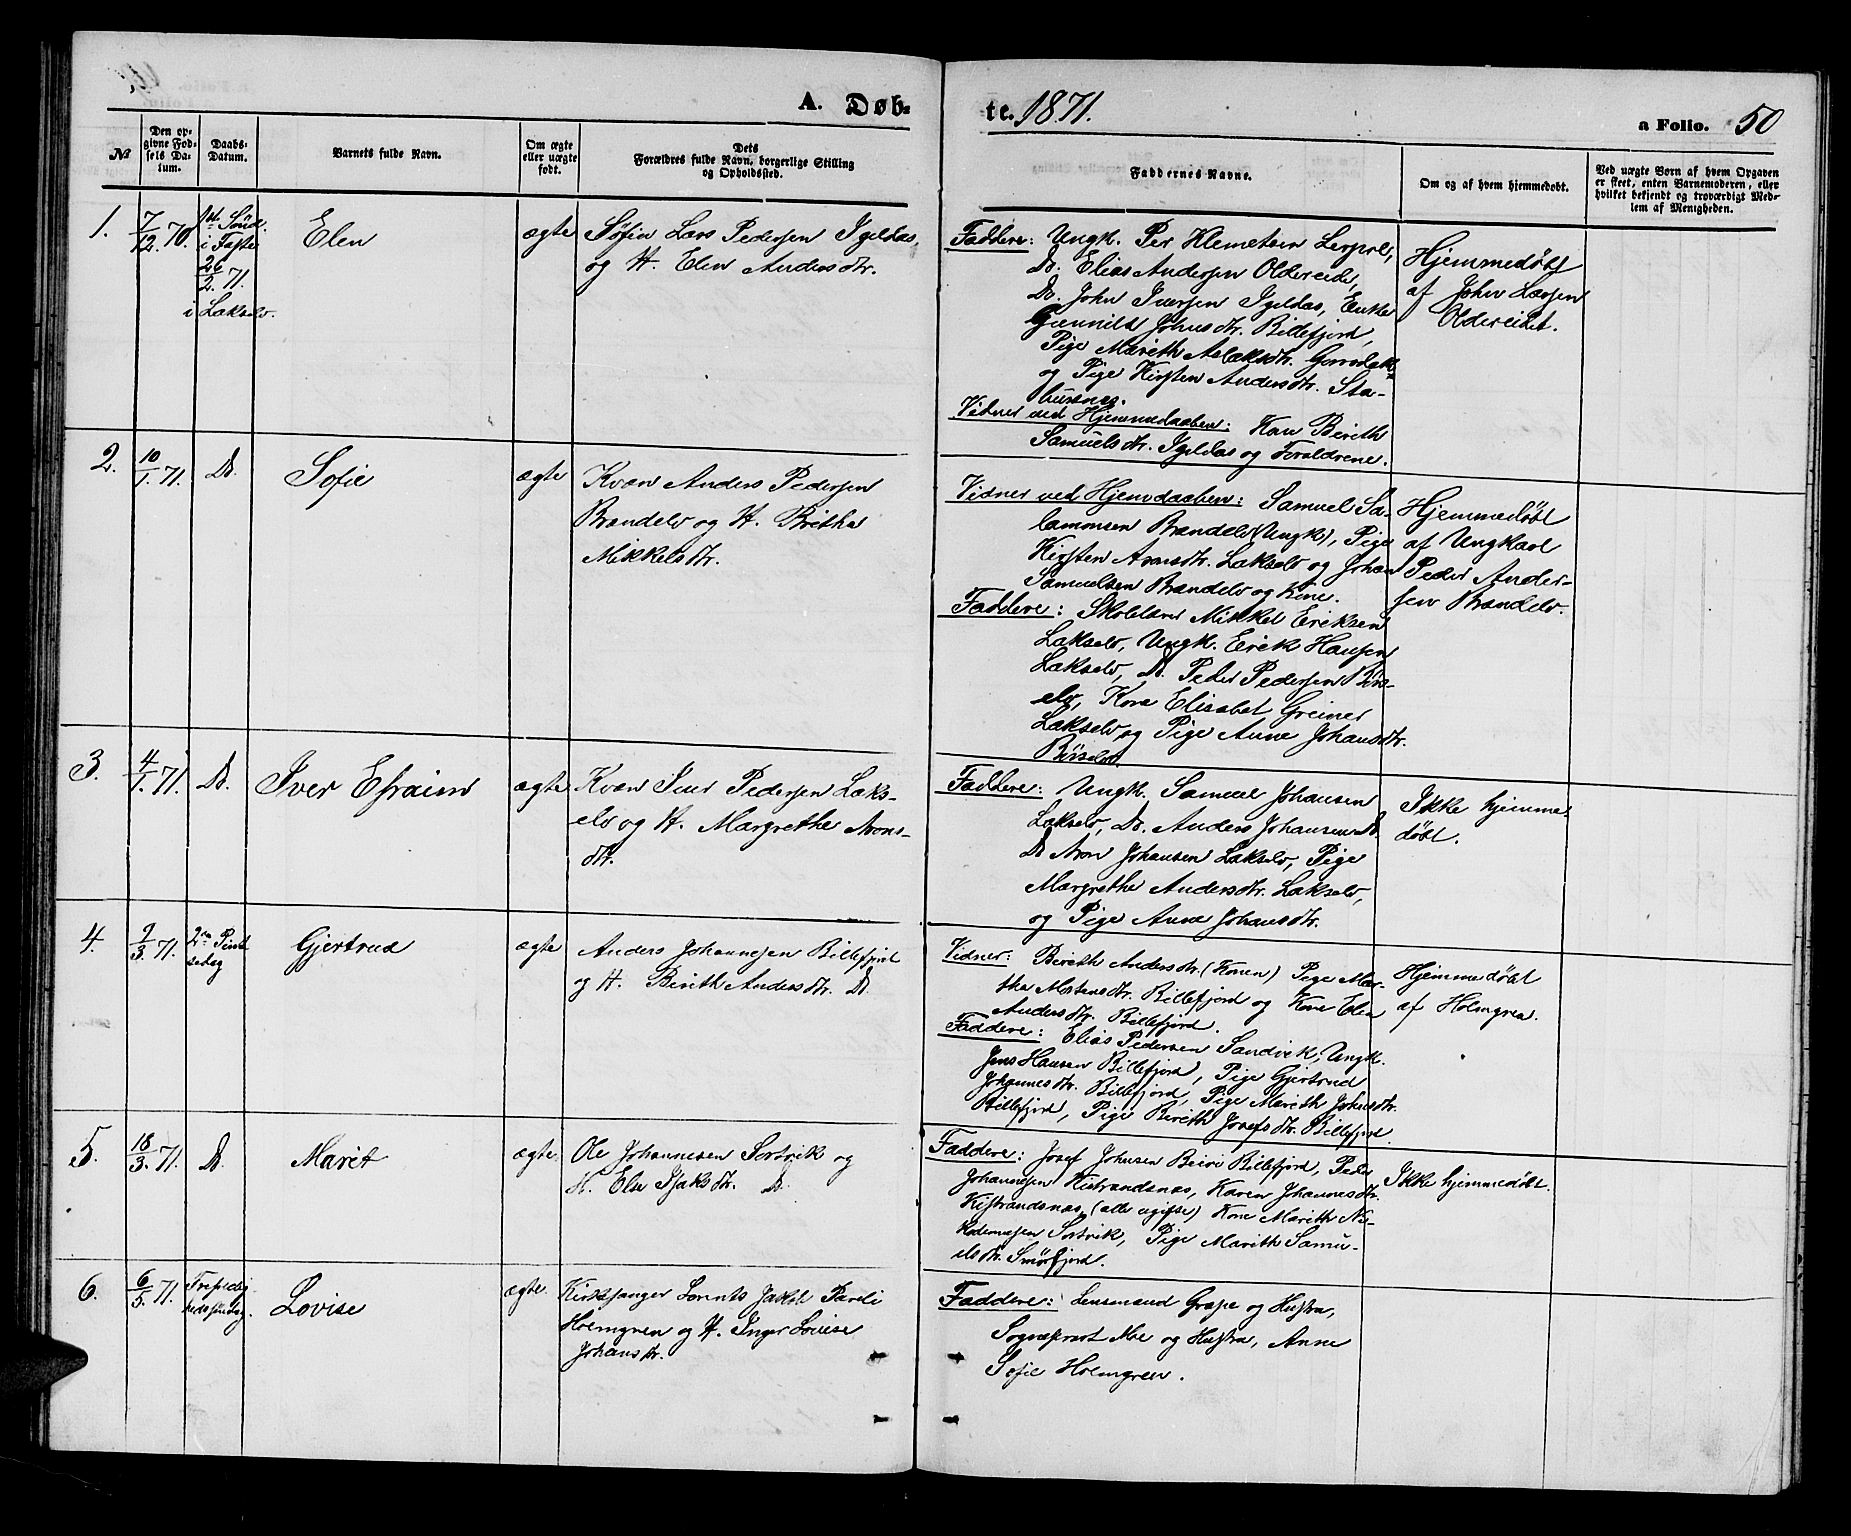 A. Døb-
te. 1871.
a Folio. 50
No
Den op-
givne Fød-
sels Da-
tum.
Daabs-
Datum.
Barnets fulde Navn.
Om ægte
eller uægte
født.
Dets
Forældres fulde Navn, borgerlige Stilling
og Opholdssted.
Faddernes Navne.
Om og af hvem hjemmedøbt.
Ved uægte Børn af hvem Opgaven
er skeet, enten Barnemoderen, eller
hvilket bekjendt og troværdigt Med-
lem af Menigheden.
1.
7/12. 70.
1ste Sønd.
i Faste
26/2. 71.
i Lakselv.
Elen
ægte
Søfin Lars Pedersen Igeldas,
og H. Elen Andersdtr.
Faddere: Ungk. Per Klemetsen Lerpol,
Do. Elias Andersen Oldereide,
Do. John Iversen Igeldas, Enke
Gunnild Johnsdtr. Billefjord,
Pige Marith Aslaksdtr.
og Pige Kirsten Andersdtr. Sta-
bursnæs.
Vidner ved Hjemmedaaben: Kon Bereth
Samuelsdtr. Igeldas og Forældrene.
Hjemmedøbt
af John Larsen
Oldereidet.
2.
10/1. 71.
Do.
Sofie
ægte
Kvæn Anders Pedersen
Brændelv og H. Britha
Mikkelsdtr.
Vidner ved Hjemdaaben: Samuel Sa-
lamonsen Brændelv (Ungk), Pige
Kirsten Aronsdtr. Lakselv og Johan
Samuelsen Brændelv og Kone.
Faddere: Skolelærer Mikkel Eriksen
Lakselv, Ungk. Erik Hansen
Lakselv, Do. Peder Pedersen Børs-
elv, Kone Elisabet Greiner
Lakselv og Pige Anne Johansdtr.
Børselv.
Hjemmedøbt
af Ungkarl
Peder Ander-
sen Brændelv.
3.
4/1. 71.
Do.
Iver Efraim
ægte
Kvæn Iver Pedersen Laks-
elv og H. Margrethe Arons-
dtr.
Faddere: Ungk. Samuel Johansen
Lakselv, Do. Anders Johansen Do.
Do Aron Johansen Lakselv, Pige
Margrethe Andersdtr. Lakselv,
og Pige Anne Johansdtr.
Ikke hjemme-
døbt.
4.
9/3. 71.
2den Pint-
sedag
Gjertrud
ægte
Anders Johannesen Billefjord
og H. Berith Andersdtr. Do.
Vidner: Bereth Andersdtr. (Konen) Pige Mar-
tha Mortensdtr. Billefjord og Kone Elen
Andersdtr. Billefjord.
Faddere: Elias Pedersen Sandvik, Ungk.
Jens Hansen Billefjord, Pige Gjertrud
Johannesdtr. Billefjord, Pige Marith Johnsdtr.
Billefjord, Pige Berith Josefsdtr. Billefjord.
Hjemmedøbt
af Holmgren.
5.
18/3. 71.
Do.
Marit
ægte
Ole Johannesen Sortvik og
H. Else Isaksdtr. Do.
Faddere: Josef Johnsen Billefjord, Peder
Johannesen Kistrandsnæs, Karen Johannesdtr.
Kistrandsnæs, (alle ugifte) Kone Marith Ni-
kodemusen Sortvik, Pige Marith Samu-
elsdtr. Smørfjord.
Ikke hjemmedøbt.
6.
6/5. 71.
Trefoldig
hedssøndag.
Lovise
ægte.
Kirksjanger Lorents Jakob Paveli
Holmgren og H. Inger Lovise
Johansdtr.
Faddere: Lensmand Grape og Hustru,
Sogneprest Moe og Hustru, Anne
Sofie Holmgren.